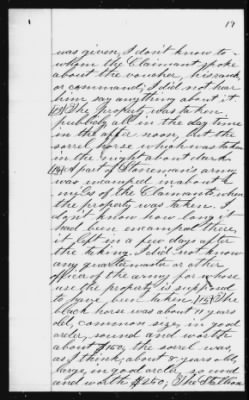 17
was given, I don't know to
whom the Claimant spoke
about the voucher, his rank
or command, I did not hear
him say anything about it
The property was taken
publicly all in the day time
in the after noon, but the
sorrel horse which was taken
in the night about dark
A part of Stoneman's army
was encamped in about 2
miles of the Claimant when
the property was taken. I
don't know how long it
had been encampt there,
it left in a few days after
the taking. I did not know
any quartermaster or other
officer of the army for whose
use the property is supposed
to have been taken, The
black horse was about 11 years
old, common size, in good
order, sound and worth
about $150, the sorel was
as I think, about 8 years old,
large, in good order, sound
and worth $250; The Stallion